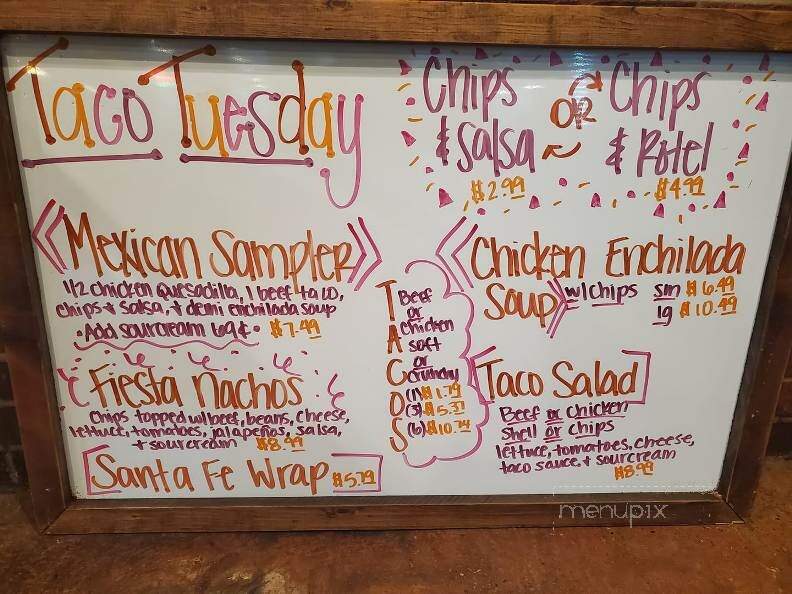 Taco Tuesday
Chips & Salsa $2.99
OR
Chips & Rotel $4.99
Mexican Sampler
1/2 chicken quesadilla, 1 beef taco,
chips & salsa, & demi enchilada soup
• Add sourcream 69¢ • $7.49
Fiesta Nachos
Chips topped w/beef, beans, cheese,
lettuce, tomatoes, jalapeños, salsa,
& sourcream $8.99
Santa Fe Wrap $5.79
TACOS
Beef
or
chicken
soft
or
crunchy
(1) $1.79
(3) $5.37
(6) $10.74
Chicken Enchilada
Soup w/chips sm $6.49
lg $10.49
Taco Salad
Beef or chicken
Shell or chips
lettuce, tomatoes, cheese,
taco sauce, & sourcream
$8.99
menupix